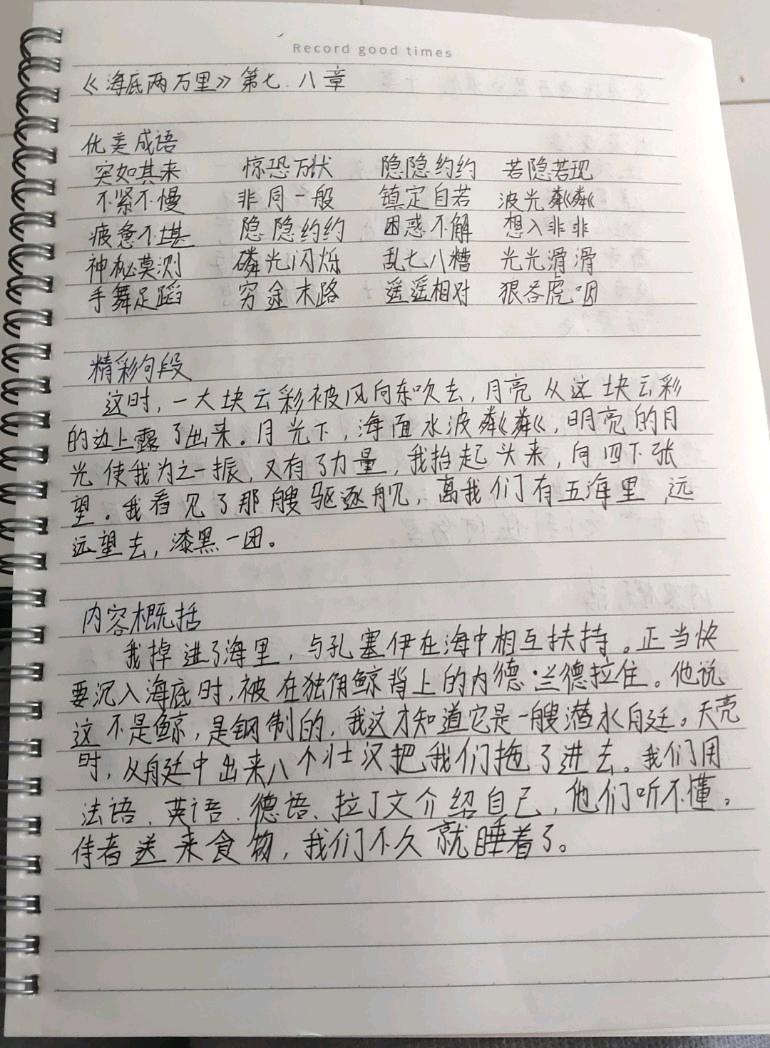 Record good times
《海底两万里》第七、八章
优美成语
突如其来 惊恐万状 隐隐约约 若隐若现
不紧不慢 非同一般 镇定自若 波光粼粼
疲惫不堪 隐隐约约 困惑不解 想入非非
神秘莫测 磷光闪烁 乱七八糟 光光滑滑
手舞足蹈 穷途末路 遥遥相对 狼吞虎咽
精彩句段
这时,一大块云彩被风向东吹去,月亮从这块云彩
的边上露了出来。月光下,海面水波粼粼,明亮的月
光使我为之一振,又有了力量,我抬起头来,向四下张
望。我看见了那艘驱逐舰,离我们有五海里,远
远望去,漆黑一团。
内容概括
我掉进了海里,与孔塞伊在海中相互扶持。正当快
要沉入海底时,被在独角鲸背上的内德·兰德拉住。他说
这不是鲸,是钢制的,我这才知道它是一艘潜水艇。天亮
时,从艇中出来八个壮汉把我们拖了进去。我们用
法语、英语、德语、拉丁文介绍自己,他们听不懂。
侍者送来食物,我们不久就睡着了。